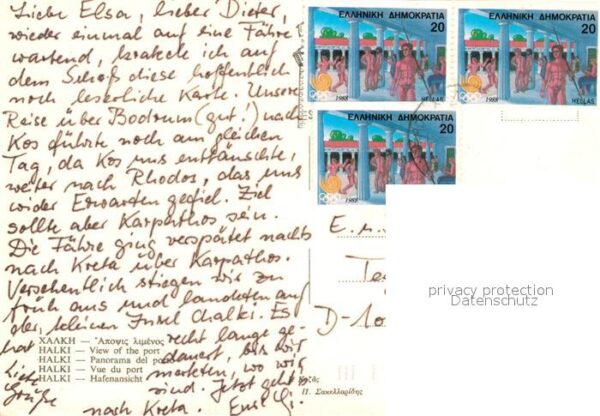 Liebe Elsa, lieber Dieter,
wieder einmal auf eine Fähre
wartend, krakele ich auf
dem Schoß diese hoffentlich
noch leserliche Karte. Unsere
Reise über Bodrum (gut!) nach
Kos führte noch am gleichen
Tag, da Kos uns enttäuschte,
weiter nach Rhodos, das uns
wider Erwarten gefiel. Ziel
sollte aber Karpathos sein.
Die Fähre ging verspätet nachts
nach Kreta über Karpathos.
Versehentlich stiegen wir zu
früh aus und landeten auf
der kleinen Insel Chalki. Es
hat recht lange ge-
dauert, bis wir
merkten, wo wir
sind. Jetzt geht's
nach Kreta.
Liebe
Grüße
ΧΑΛΚΗ — Ἄποψις λιμένος
HALKI — View of the port
HALKI — Panorama del po
HALKI — Vue du port
HALKI — Hafenansicht
ΕΛΛΗΝΙΚΗ ΔΗΜΟΚΡΑΤΙΑ
20
1988
HELLAS
ΕΛΛΗΝΙΚΗ ΔΗΜΟΚΡΑΤΙΑ
20
1988
HELLAS
ΕΛΛΗΝΙΚΗ ΔΗΜΟΚΡΑΤΙΑ
20
1988
D-10
Π. Σακελλαρίδης
privacy protection
Datenschutz